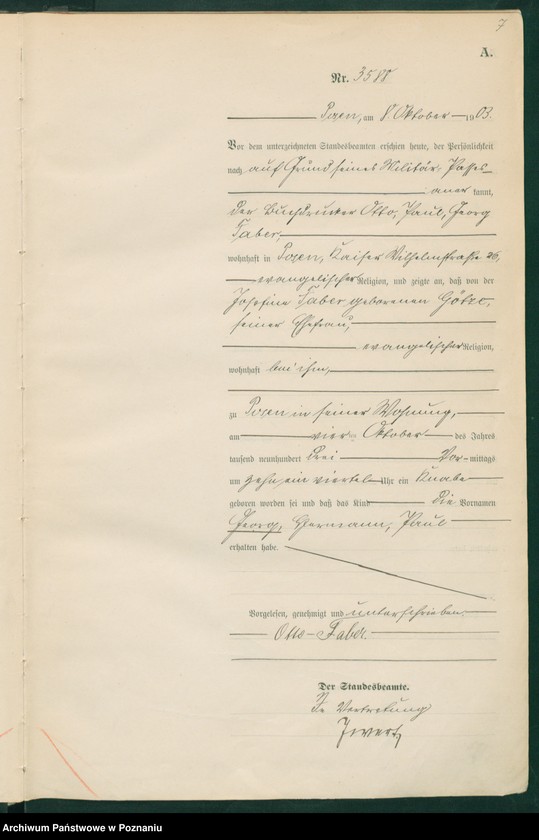 7
A.
Nr. 3588
Posen, am 8. Oktober 1903.
Vor dem unterzeichneten Standesbeamten erschien heute, der Persönlichkeit
nach auf Grund seines Militär-Passes
anerkannt,
der Buchdrucker Otto, Paul, Georg
Faber,
wohnhaft in Posen, Kaiser Wilhelmstraße 26,
evangelischer Religion, und zeigte an, daß von der
Josefine Faber geborenen Götze,
seiner Ehefrau,
evangelischer Religion,
wohnhaft bei ihm,
zu Posen in seiner Wohnung,
am vierten Oktober des Jahres
tausend neunhundert drei Vor-mittags
um zehn ein viertel Uhr ein Knabe
geboren worden sei und daß das Kind die Vornamen
Georg, Hermann, Paul
erhalten habe.
Vorgelesen, genehmigt und unterschrieben.
Otto Faber.
Der Standesbeamte.
In Vertretung
Archiwum Państwowe w Poznaniu